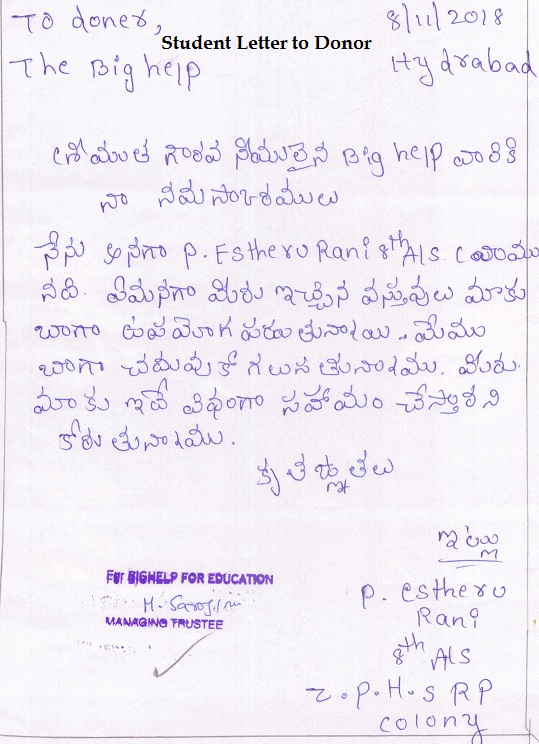 To doner,
8/11/2018
Student Letter to Donor
The Big help
Hydrabad
గౌరవ Big help వారికి
నా
నేను అనగా P. Estheru Rani 8th A/s.
ఏమనగా మీరు ఇచ్చిన వస్తువులు మాకు
బాగా ఉపయోగ పడు తున్నాయి.. మేము
బాగా చదువుకో గలుగ తున్నాము. మీరు
మాకు ఇదే విధంగా సహాయం
కోరు తున్నాము.
కృతజ్ఞతలు
ఇట్లు
For BIGHELP FOR EDUCATION
MANAGING TRUSTEE
P. Estheru
Rani
8th A/s
Z.P.H.S RP
Colony